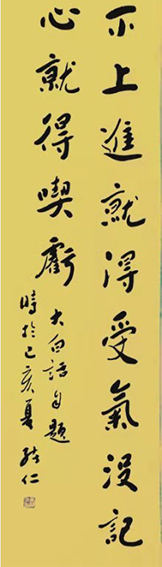 不上進就得受氣沒記
心就得喫虧
大白話自題
時於己亥夏 結仁